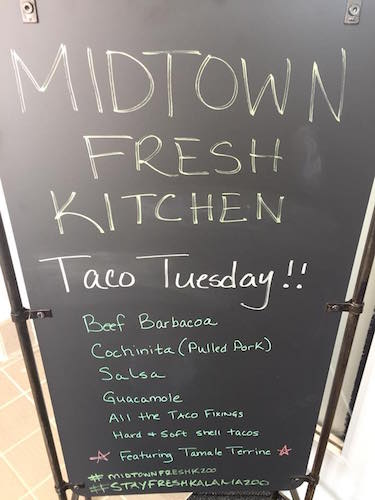 MIDTOWN
FRESH
KITCHEN
Taco Tuesday!!
Beef Barbacoa
Cochinita (Pulled Pork)
Salsa
Guacamole
All the Taco Fixings
Hard + Soft shell tacos
Featuring Tamale Terrine
#MIDTOWNFRESHKZOO
#STAYFRESHKALAMAZOO